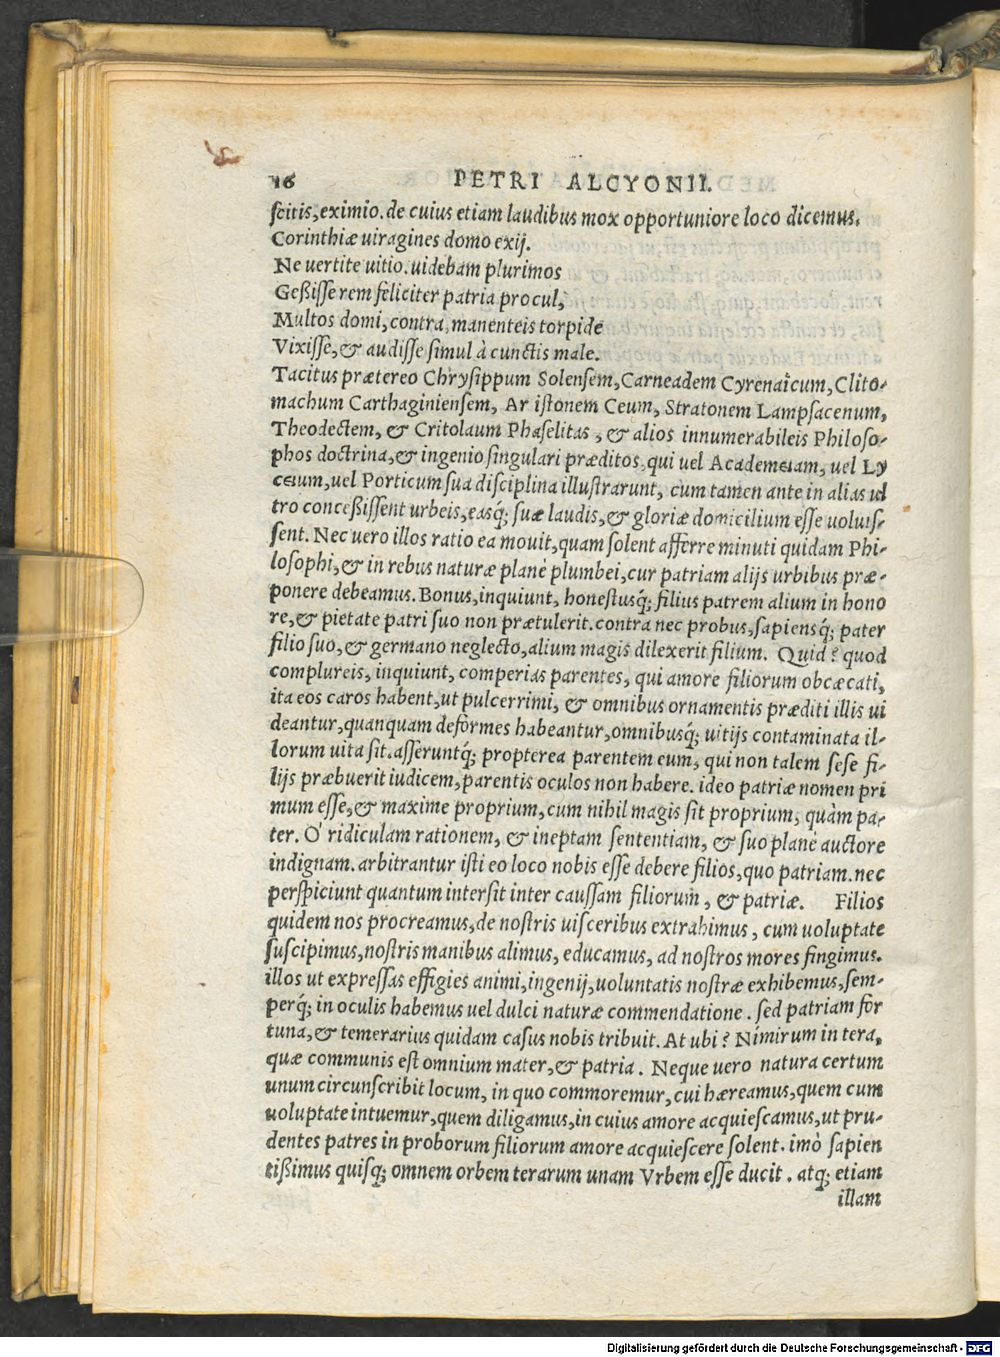 16 PETRI ALCYONII.
scitis, eximio. de cuius etiam laudibus mox opportuniore loco dicemus.
Corinthiæ uiragines domo exij.
Ne uertite uitio. uidebam plurimos
Geßisse rem feliciter patria procul,
Multos domi, contra, manenteis torpidè
Vixisse, & audisse simul à cunctis male.
Tacitus prætereo Chrysippum Solensem, Carneadem Cyrenaïcum, Clito-
machum Carthaginiensem, Aristonem Ceum, Stratonem Lampsacenum,
Theodectem, & Critolaum Phaselitas, & alios innumerabileis Philoso-
phos doctrina, & ingenio singulari præditos, qui uel Academeiam, uel Ly
ceium, uel Porticum sua disciplina illustrarunt, cum tamen ante in alias ul
tro conceßissent urbeis, easq́; suæ laudis, & gloriæ domicilium esse uoluis-
sent. Nec uero illos ratio ea mouit, quam solent afferre minuti quidam Phi-
losophi, & in rebus naturæ planè plumbei, cur patriam alijs urbibus præ-
ponere debeamus. Bonus, inquiunt, honestusq́; filius patrem alium in hono
re, & pietate patri suo non prætulerit. contra nec probus, sapiensq́; pater
filio suo, & germano neglecto, alium magis dilexerit filium. Quid? quod
complureis, inquiunt, comperias parentes, qui amore filiorum obcæcati,
ita eos caros habent, ut pulcerrimi, & omnibus ornamentis præditi illis ui
deantur, quanquam deformes habeantur, omnibusq́; uitijs contaminata il-
lorum uita sit. asseruntq́; propterea parentem eum, qui non talem sese fi-
lijs præbuerit iudicem, parentis oculos non habere. ideo patriæ nomen pri
mum esse, & maxime proprium, cum nihil magis sit proprium, quàm pa-
ter. O' ridiculam rationem, & ineptam sententiam, & suo planè auctore
indignam. arbitrantur isti eo loco nobis esse debere filios, quo patriam. nec
perspiciunt quantum intersit inter caussam filiorum, & patriæ. Filios
quidem nos procreamus, de nostris uisceribus extrahimus, cum uoluptate
suscipimus, nostris manibus alimus, educamus, ad nostros mores fingimus.
illos ut expressas effigies animi, ingenij, uoluntatis nostræ exhibemus, sem-
perq́; in oculis habemus uel dulci naturæ commendatione. sed patriam for
tuna, & temerarius quidam casus nobis tribuit. At ubi? Nimirum in tera,
quæ communis est omnium mater, & patria. Neque uero natura certum
unum circunscribit locum, in quo commoremur, cui hæreamus, quem cum
uoluptate intuemur, quem diligamus, in cuius amore acquiescamus, ut pru-
dentes patres in proborum filiorum amore acquiescere solent. imò sapien
tißimus quisq; omnem orbem terarum unam Vrbem esse ducit. atq; etiam
illam
Digitalisierung gefördert durch die Deutsche Forschungsgemeinschaft - DFG